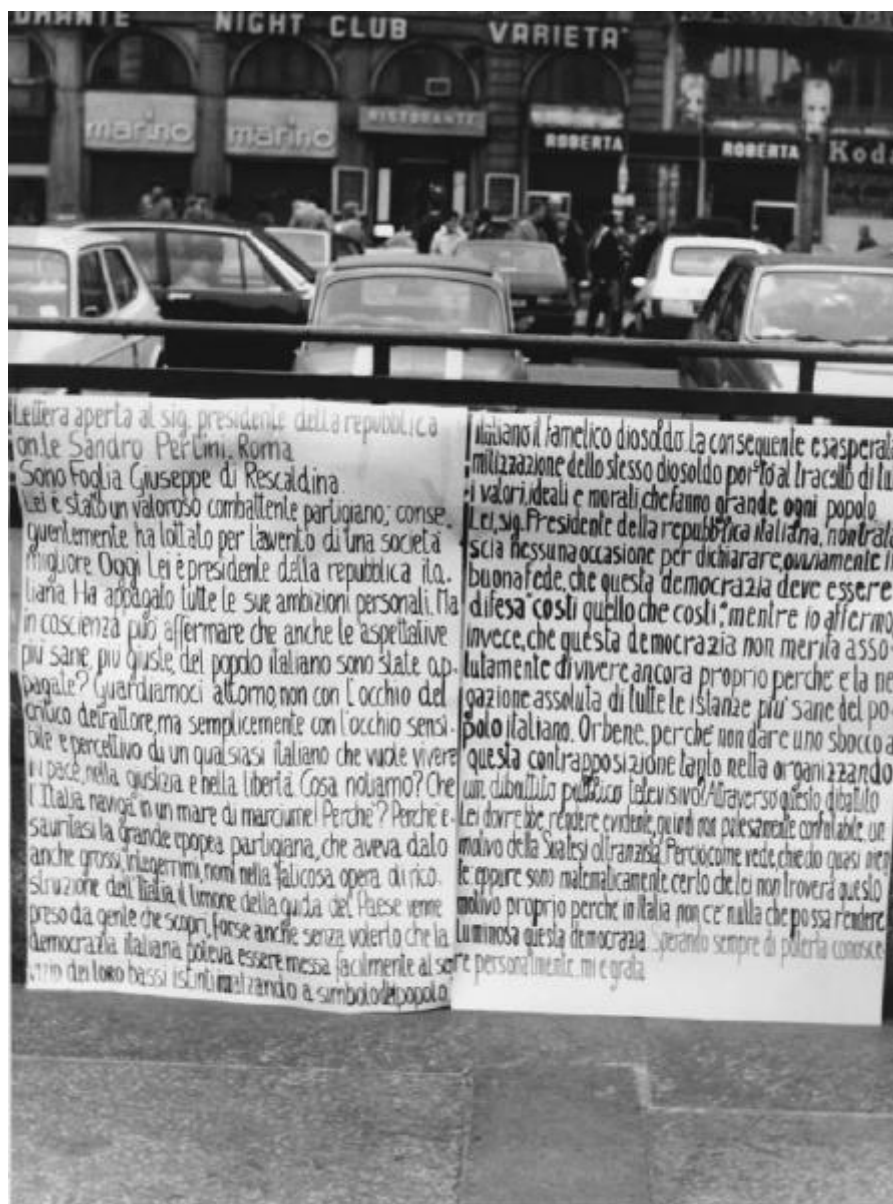 RANTE NIGHT CLUB VARIETA'
marino
marino
RISTORANTE
ROBERTA
ROBERTA
Koda
Lettera aperta al sig. presidente della repubblica
on.le Sandro Pertini. Roma
Sono Foglia Giuseppe di Rescaldina
Lei è stato un valoroso combattente partigiano; conse.
guentemente ha lottato per l'avvento di una società
migliore Oggi Lei è presidente della repubblica ita.
liana Ha appagato tutte le sue ambizioni personali. Ma
in coscienza può affermare che anche le aspettative
più sane, più giuste, del popolo italiano sono state ap.
pagate? Guardiamoci attorno, non con l'occhio del
critico detrattore, ma semplicemente con l'occhio sensi.
bile e percettivo di un qualsiasi italiano che vuole vivere
in pace, nella giustizia e nella libertà. Cosa notiamo? Che
l'Italia naviga in un mare di marciume! Perchè? Perchè e-
sauritasi la grande epopea partigiana, che aveva dato
anche grossi, integerrimi, nomi nella faticosa opera di rico.
struzione dell'Italia il timone della guida del Paese venne
preso da gente che scoprì, forse anche senza volerlo che la
democrazia italiana poteva essere messa facilmente al ser
vizio dei loro bassi istinti inalzando a simbolo del popolo
italiano il famelico dio soldo. La conseguente esasperata
mitizzazione dello stesso dio soldo portò al tracollo di tu
i valori, ideali e morali che fanno grande ogni popolo
Lei, sig. Presidente della repubblica italiana, non trala
scia nessuna occasione per dichiarare, ovviamente in
buona fede, che questa democrazia deve essere
difesa "costi quello che costi", mentre io affermo
invece, che questa democrazia non merita asso-
lutamente di vivere ancora proprio perchè è la ne
gazione assoluta di tutte le istanze più sane del po
polo italiano. Orbene, perchè non dare uno sbocco a
questa contrapposizione tanto netta organizzando
un dibattito pubblico televisivo? Attraverso questo dibattito
Lei dovrebbe rendere evidente, quindi non palesemente confutabile, un
motivo della Sua tesi oltranzista. Perciò come vede, chiedo quasi nien
te eppure sono matematicamente certo che lei non troverà questo
motivo proprio perchè in Italia non c'è nulla che possa rendere
luminosa questa democrazia. Sperando sempre di poterla conosce
re personalmente. mi è grata